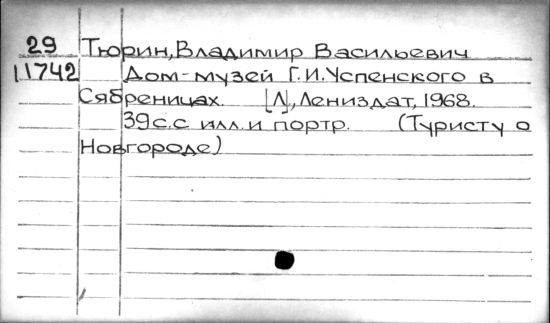 29 Тюрин, Владимир Васильевич
11742 Дом-музей Г.И.Успенского в
Сябреницах. [Л], Лениздат, 1968.
39с.с илл. и портр. (Туристу о
Новгороде)